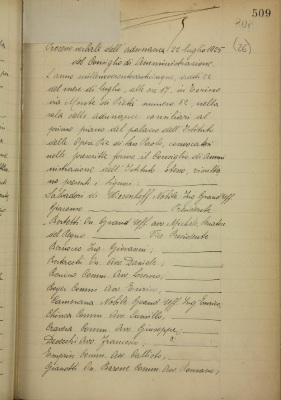 509
(26)
Processo verbale dell'adunanza 22 luglio 1925
del Consiglio di Amministrazione.
L'anno millenovecentoventicinque, addì 22
del mese di luglio, alle ore 17, in Torino
via Monte di Pietà numero 32, nella
sala delle adunanze consiliari al
primo piano del palazzo dell'Istituto
delle Opere Pie di San Paolo, convocatosi
nelle prescritte forme il Consiglio di Ammi
nistrazione dell'Istituto stesso, risulta
no presenti i Signori:
Salvadori di Wiesenhoff Nobile Ing. Grand'Uff.
Giacomo Presidente
On. Grand'Uff. avv. Michele, Senatore
del Regno Vice Presidente
Ing. Giovanni,
On. Avv. Daniele,
Comm. Avv.
Comm. Avv. Enrico,
Nobile Grand'Uff. Ing. Enrico,
Comm. Avv. Camillo,
Comm. Avv. Giuseppe,
Avv. Francesco,
Comm. Avv. Battista,
Gianotti On. Barone Comm. Avv. Romano,